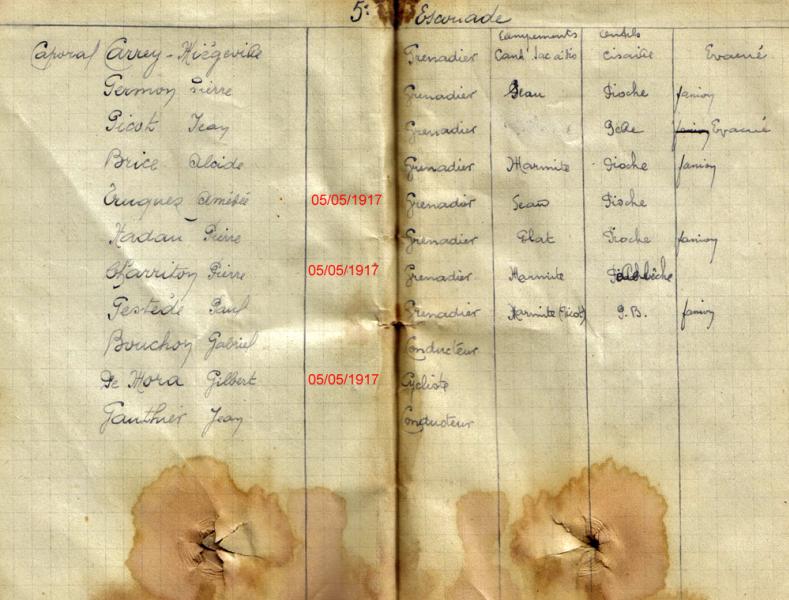 5e Escouade
Campements Outils
Caporal Carrey-Hiégeville Grenadier Cisaille Evacué
Germon Pierre Grenadier Seau Pioche fanion
Picot Jean Grenadier Pelle fanion Evacué
Brice Alcide Grenadier Marmite Pioche fanion
Amédée 05/05/1917 Grenadier Seau Pioche
Nadau Pierre Grenadier Plat Pioche fanion
Charriton Pierre 05/05/1917 Grenadier Marmite
Testède Paul Grenadier Marmite (Picot) P.B. fanion
Bouchon Gabriel Conducteur
De Mora Gilbert 05/05/1917 Cycliste
Gauthier Jean Conducteur